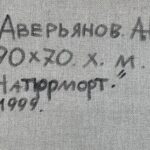 Аверьянов. А.
90х70. х. м.
"Натюрморт."
1999.